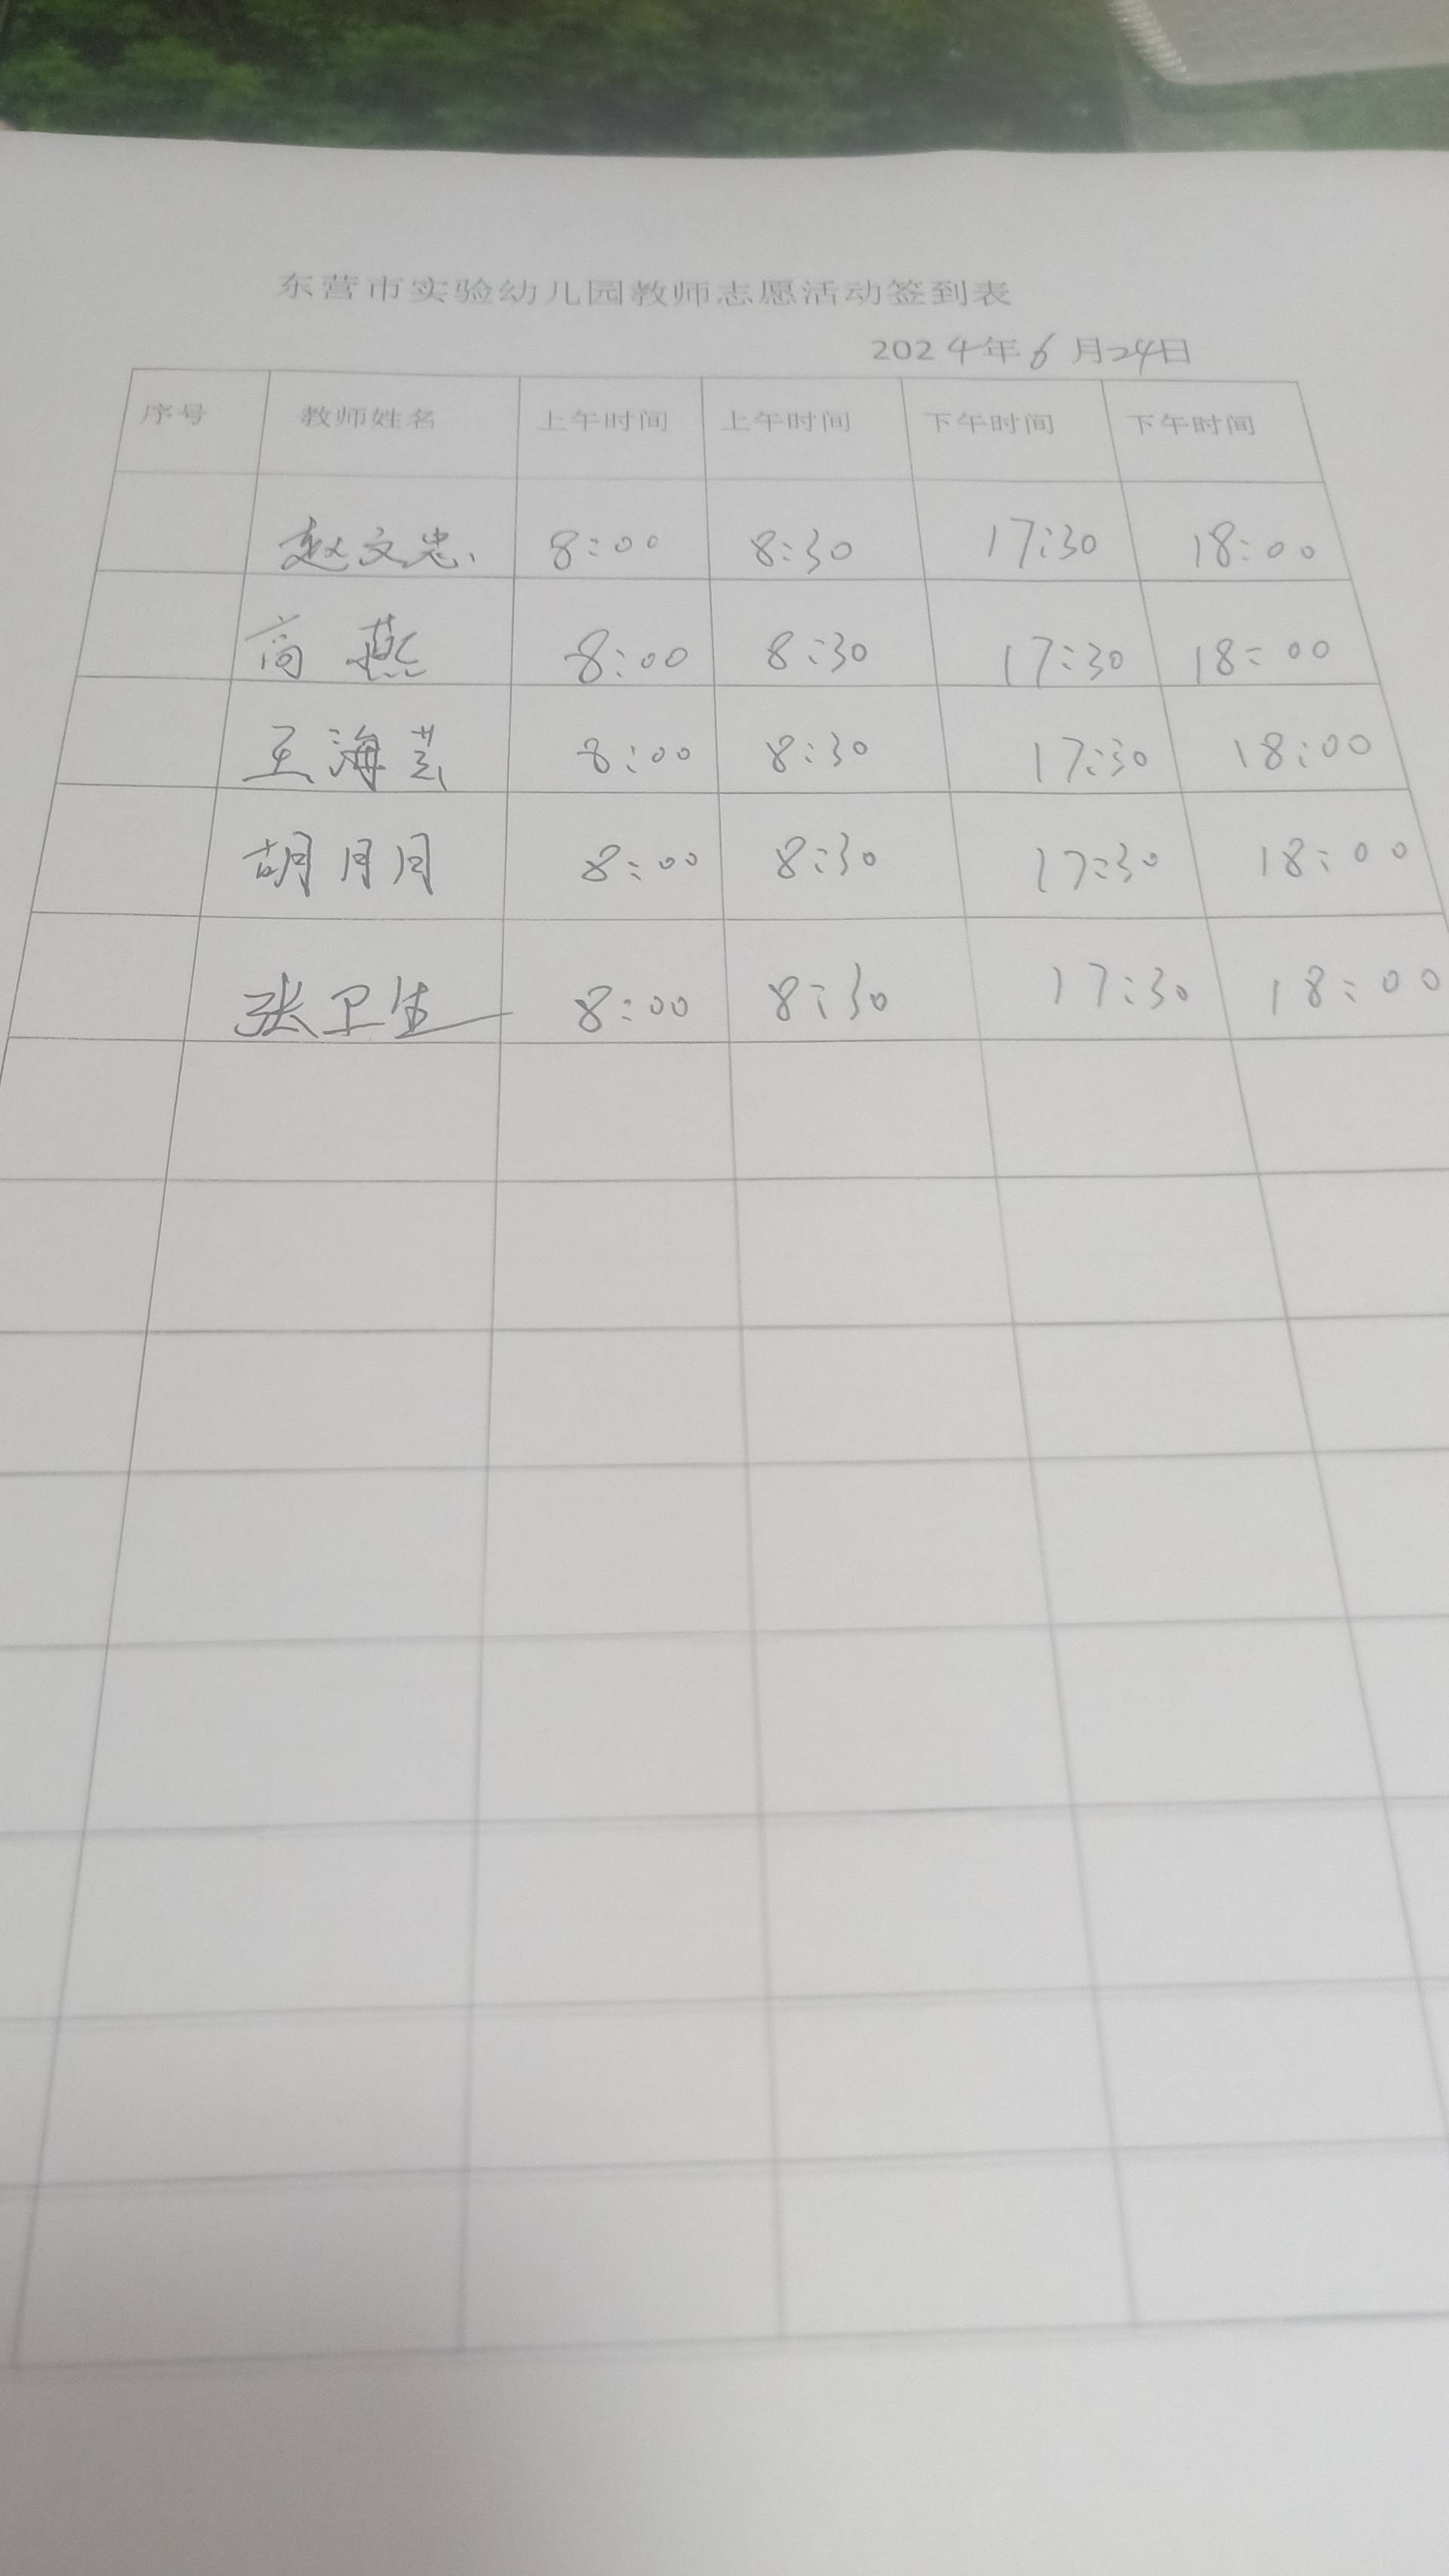 东营市实验幼儿园教师志愿活动签到表
2024年6月24日
序号 教师姓名 上午时间 上午时间 下午时间 下午时间
赵文忠 8:00 8:30 17:30 18:00
高燕 8:00 8:30 17:30 18:00
王海芸 8:00 8:30 17:30 18:00
胡月月 8:00 8:30 17:30 18:00
张卫生 8:00 8:30 17:30 18:00